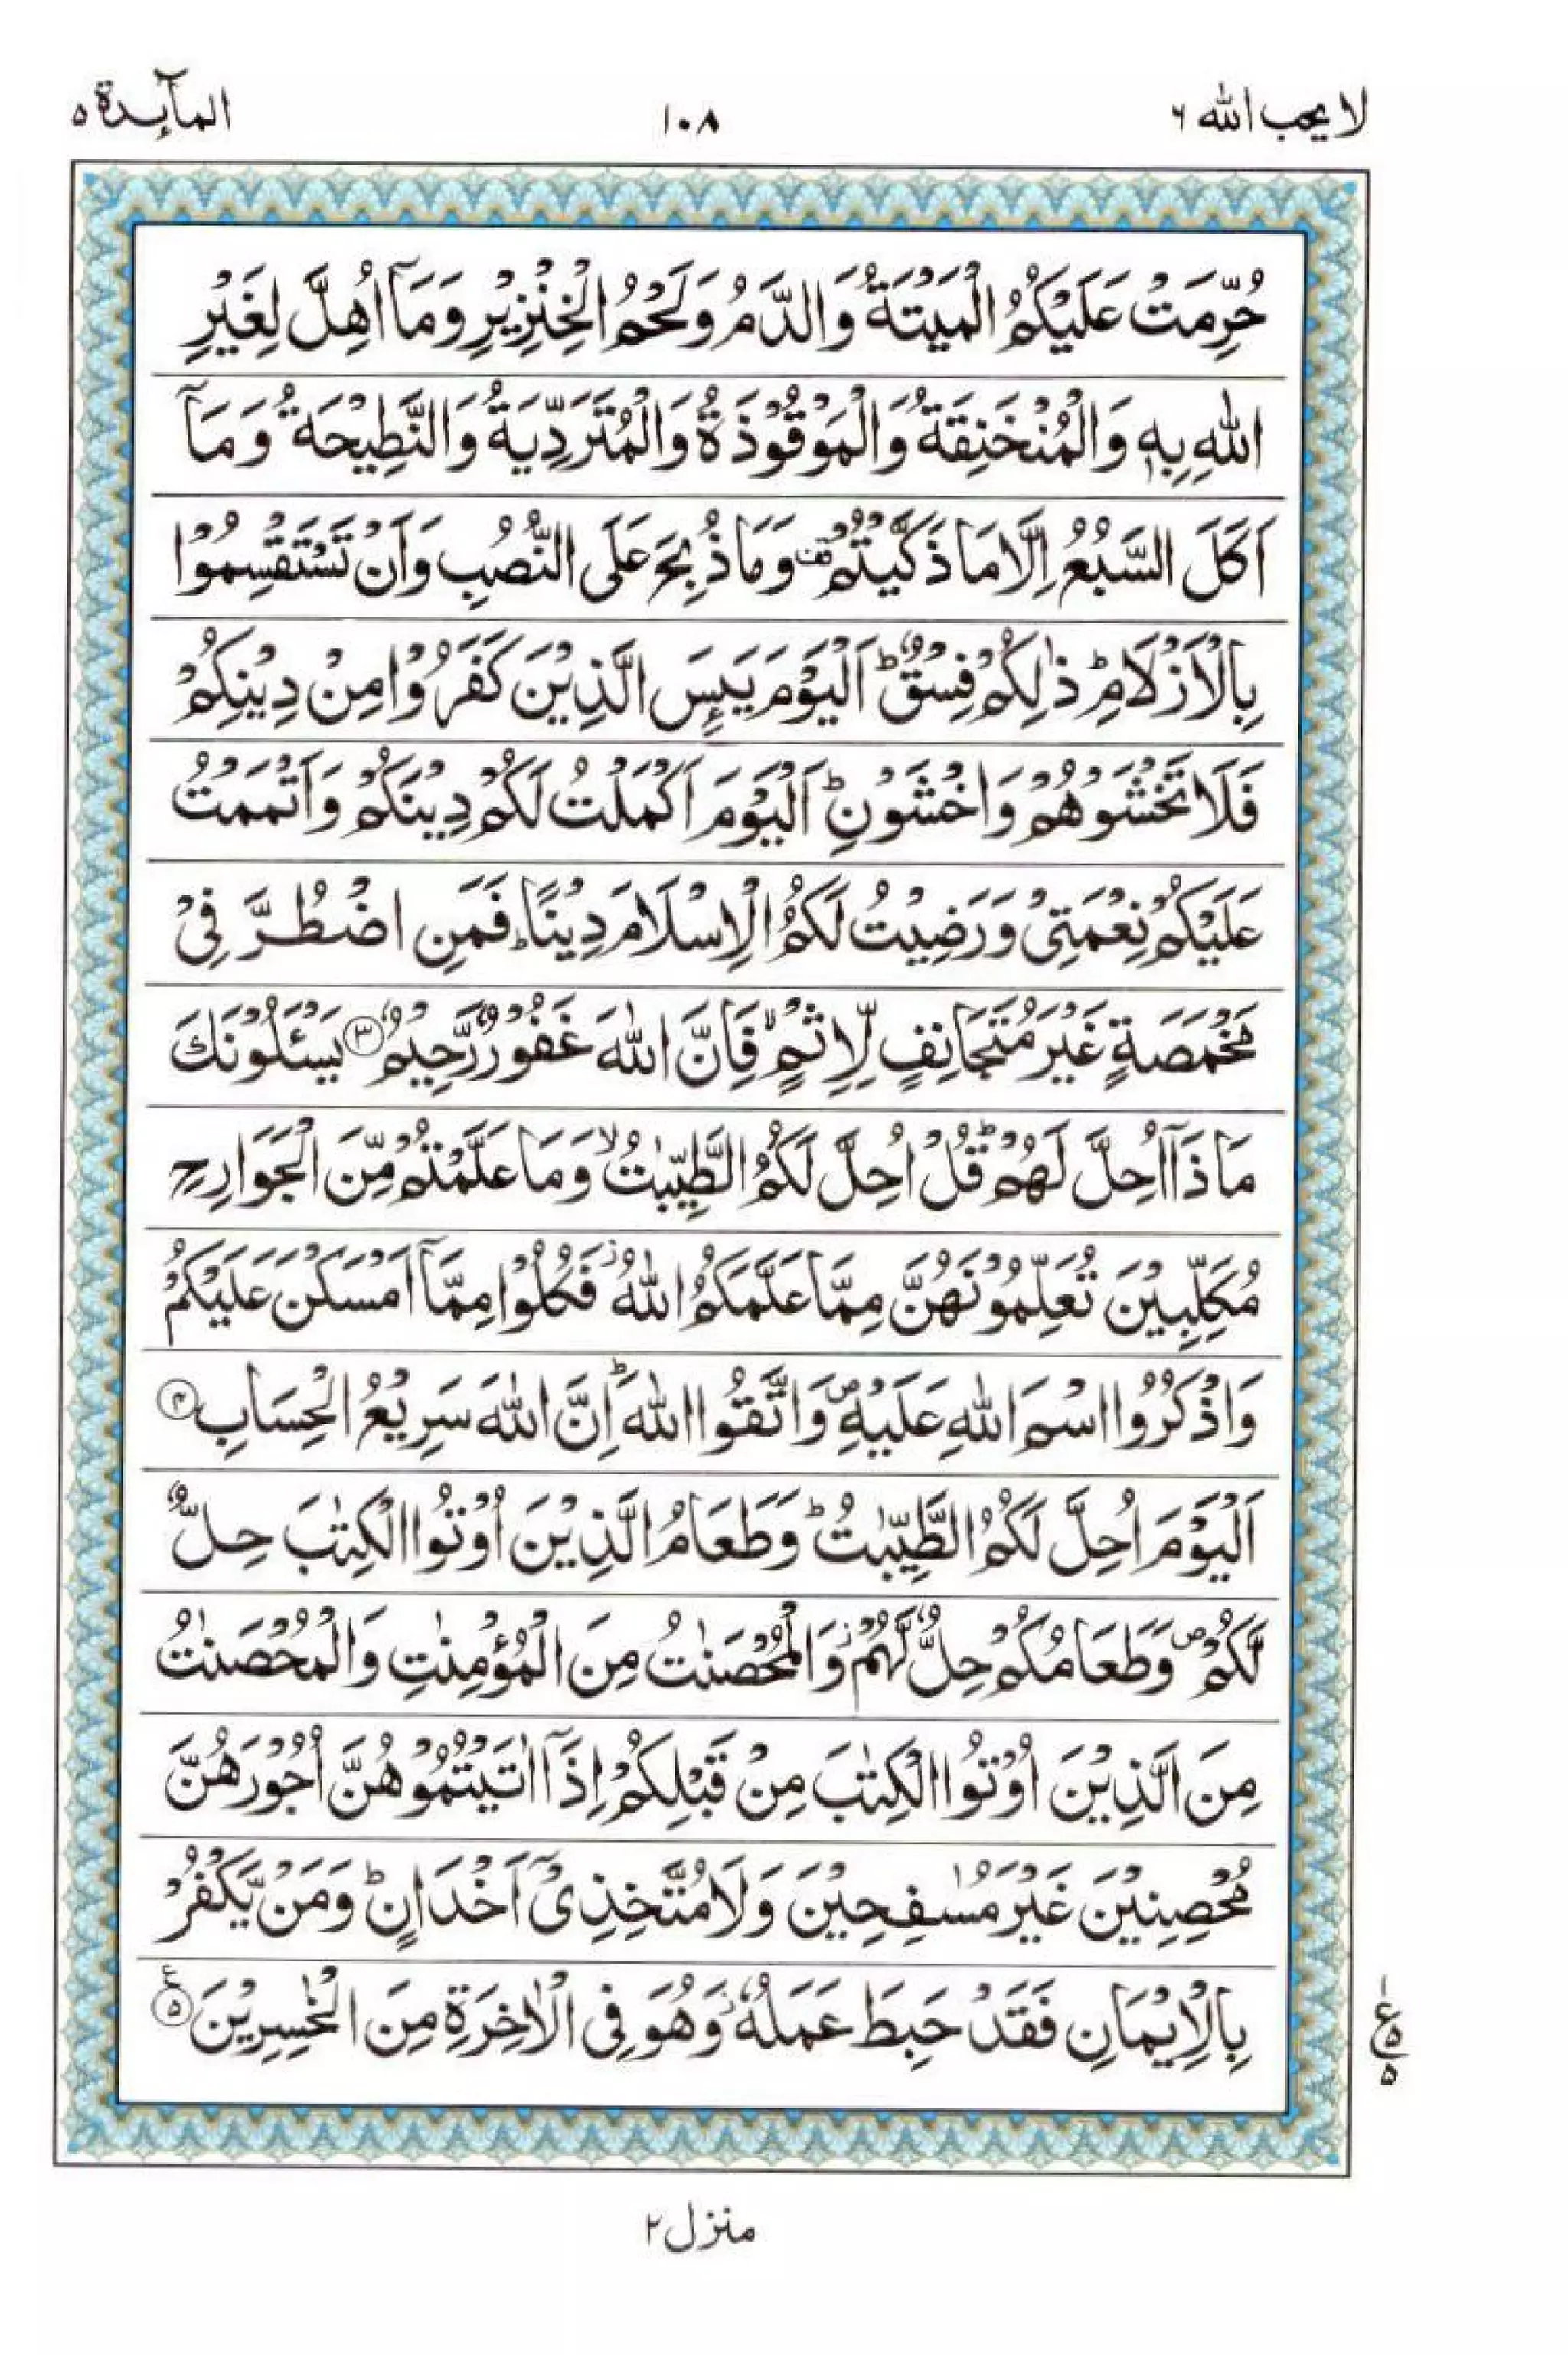 لا یحب الله ۶
۱۰۸
المآىِٕدة ۵
حُرِّمَتْ عَلَیْكُمُ الْمَیْتَةُ وَالدَّمُ وَلَحْمُ الْخِنْزِیْرِ وَمَاۤ اُهِلَّ لِغَیْرِ
اللّٰهِ بِهٖ وَالْمُنْخَنِقَةُ وَالْمَوْقُوْذَةُ وَالْمُتَرَدِّیَةُ وَالنَّطِیْحَةُ وَمَاۤ
اَكَلَ السَّبُعُ اِلَّا مَا ذَكَّیْتُمْ ۫ وَمَا ذُبِحَ عَلَی النُّصُبِ وَاَنْ تَسْتَقْسِمُوْا
بِالْاَزْلَامِ ؕ ذٰلِكُمْ فِسْقٌ ؕ اَلْیَوْمَ یَىِٕسَ الَّذِیْنَ كَفَرُوْا مِنْ دِیْنِكُمْ
فَلَا تَخْشَوْهُمْ وَاخْشَوْنِ ؕ اَلْیَوْمَ اَكْمَلْتُ لَكُمْ دِیْنَكُمْ وَاَتْمَمْتُ
عَلَیْكُمْ نِعْمَتِیْ وَرَضِیْتُ لَكُمُ الْاِسْلَامَ دِیْنًا ؕ فَمَنِ اضْطُرَّ فِیْ
مَخْمَصَةٍ غَیْرَ مُتَجَانِفٍ لِّاِثْمٍ ۙ فَاِنَّ اللّٰهَ غَفُوْرٌ رَّحِیْمٌ ۳ یَسْـَٔلُوْنَكَ
مَا ذَاۤ اُحِلَّ لَهُمْ ؕ قُلْ اُحِلَّ لَكُمُ الطَّیِّبٰتُ ۙ وَمَا عَلَّمْتُمْ مِّنَ الْجَوَارِحِ
مُكَلِّبِیْنَ تُعَلِّمُوْنَهُنَّ مِمَّا عَلَّمَكُمُ اللّٰهُ ؗ فَكُلُوْا مِمَّاۤ اَمْسَكْنَ عَلَیْكُمْ
وَاذْكُرُوا اسْمَ اللّٰهِ عَلَیْهِ ۪ وَاتَّقُوا اللّٰهَ ؕ اِنَّ اللّٰهَ سَرِیْعُ الْحِسَابِ ۴
اَلْیَوْمَ اُحِلَّ لَكُمُ الطَّیِّبٰتُ ؕ وَطَعَامُ الَّذِیْنَ اُوْتُوا الْكِتٰبَ حِلٌّ
لَّكُمْ ۪ وَطَعَامُكُمْ حِلٌّ لَّهُمْ ؗ وَالْمُحْصَنٰتُ مِنَ الْمُؤْمِنٰتِ وَالْمُحْصَنٰتُ
مِنَ الَّذِیْنَ اُوْتُوا الْكِتٰبَ مِنْ قَبْلِكُمْ اِذَاۤ اٰتَیْتُمُوْهُنَّ اُجُوْرَهُنَّ
مُحْصِنِیْنَ غَیْرَ مُسٰفِحِیْنَ وَلَا مُتَّخِذِیْۤ اَخْدَانٍ ؕ وَمَنْ یَّكْفُرْ
بِالْاِیْمَانِ فَقَدْ حَبِطَ عَمَلُهٗ ؗ وَهُوَ فِی الْاٰخِرَةِ مِنَ الْخٰسِرِیْنَ ۵ ع
۱ ع ۵ ۵
منزل ۲